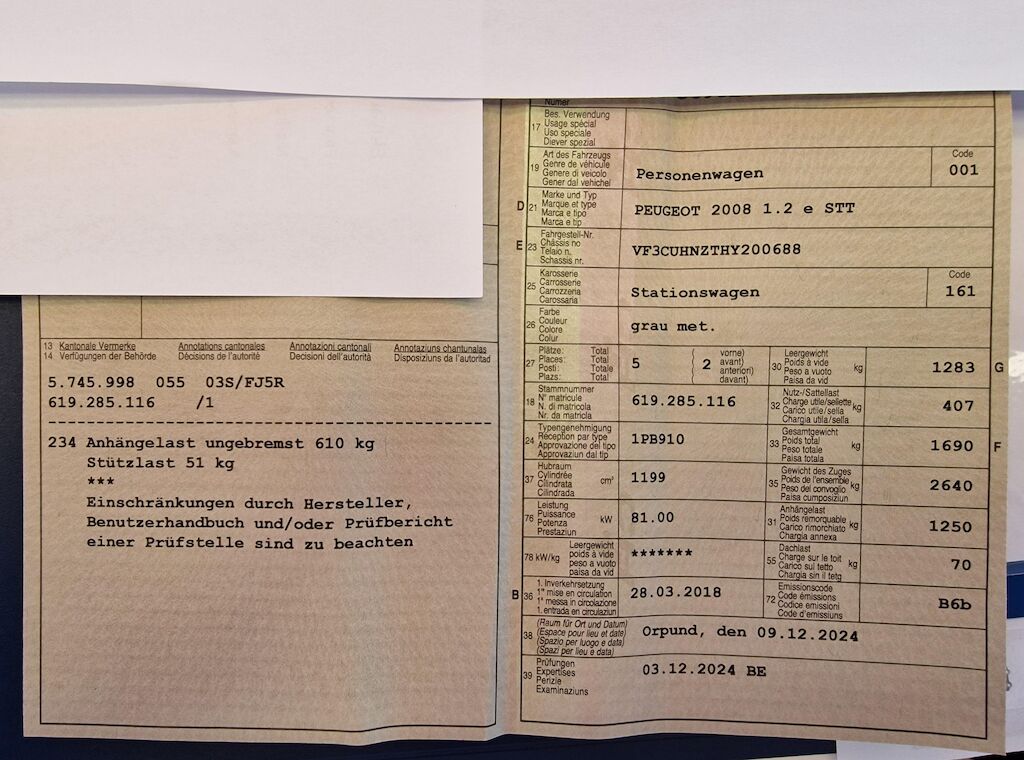 13 Kantonale Vermerke Annotations cantonales Annotazioni cantonali Annotaziuns chantunalas
14 Verfügungen der Behörde Décisions de l'autorité Decisioni dell'autorità Disposiziuns da l'autoritad
5.745.998 055 03S/FJ5R
619.285.116 /1
234 Anhängelast ungebremst 610 kg
Stützlast 51 kg
***
Einschränkungen durch Hersteller,
Benutzerhandbuch und/oder Prüfbericht
einer Prüfstelle sind zu beachten
Numer
17
Bes. Verwendung
Usage spécial
Uso speciale
Diever spezial
19
Art des Fahrzeugs
Genre de véhicule
Genere di veicolo
Gener dal vehichel
Personenwagen
Code
001
D 21
Marke und Typ
Marque et type
Marca e tipo
Marca e tip
PEUGEOT 2008 1.2 e STT
E 23
Fahrgestell-Nr.
Châssis no
Telaio n.
Schassis nr.
VF3CUHNZTHY200688
25
Karosserie
Carrosserie
Carrozzeria
Carossaria
Stationswagen
Code
161
26
Farbe
Couleur
Colore
Colur
grau met.
27
Plätze: Total
Places: Total
Posti: Totale
Plazs: Total
5
2
vorne)
avant)
anteriori)
davant)
30
Leergewicht
Poids à vide
Peso a vuoto
Paisa da vid
kg
1283 G
18
Stammnummer
N° matricule
N. di matricola
Nr. da matricla
619.285.116
32
Nutz-/Sattellast
Charge utile/sellette
Carico utile/sella
Chargia utila/sella
kg
407
24
Typengenehmigung
Réception par type
Approvazione del tipo
Approvaziun dal tip
1PB910
33
Gesamtgewicht
Poids total
Peso totale
Paisa totala
kg
1690 F
37
Hubraum
Cylindrée
Cilindrata
Cilindrada
cm³
1199
35
Gewicht des Zuges
Poids de l'ensemble
Peso del convoglio
Paisa cumposiziun
kg
2640
76
Leistung
Puissance
Potenza
Prestaziun
kW
81.00
31
Anhängelast
Poids remorquable
Carico rimorchiato
Chargia annexa
kg
1250
78 kW/kg
Leergewicht
poids à vide
peso a vuoto
paisa da vid
*******
55
Dachlast
Charge sur le toit
Carico sul tetto
Chargia sin il tetg
kg
70
B 36
1. Inverkehrsetzung
1re mise en circulation
1a messa in circolazione
1. entrada en circulaziun
28.03.2018
72
Emissionscode
Code émissions
Codice emissioni
Code d'emissiuns
B6b
38
(Raum für Ort und Datum)
(Espace pour lieu et date)
(Spazio per luogo e data)
(Spazi per lieu e data)
Orpund, den 09.12.2024
39
Prüfungen
Expertises
Perizie
Examinaziuns
03.12.2024 BE